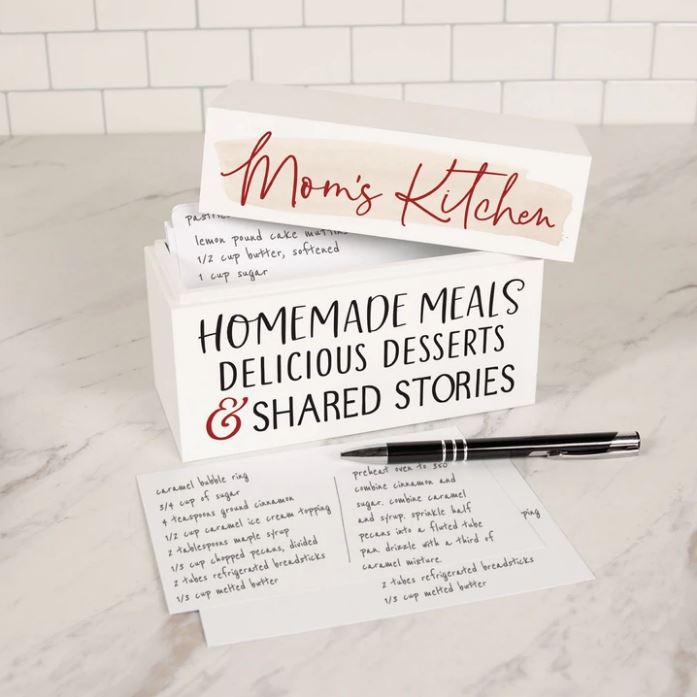 Mom's Kitchen
lemon pound cake muffins
1/2 cup butter, softened
1 cup sugar
HOMEMADE MEALS
DELICIOUS DESSERTS
& SHARED STORIES
caramel bubble ring
3/4 cup of sugar
4 teaspoons ground cinnamon
1/2 cup caramel ice cream topping
2 tablespoons maple syrup
1/3 cup chopped pecans, divided
2 tubes refrigerated breadsticks
1/3 cup melted butter
preheat oven to 350
combine cinnamon and
sugar. combine caramel
and syrup. sprinkle half
pecans into a fluted tube
pan. drizzle with a third of
caramel mixture.
ping
2 tubes refrigerated breadsticks
1/3 cup melted butter